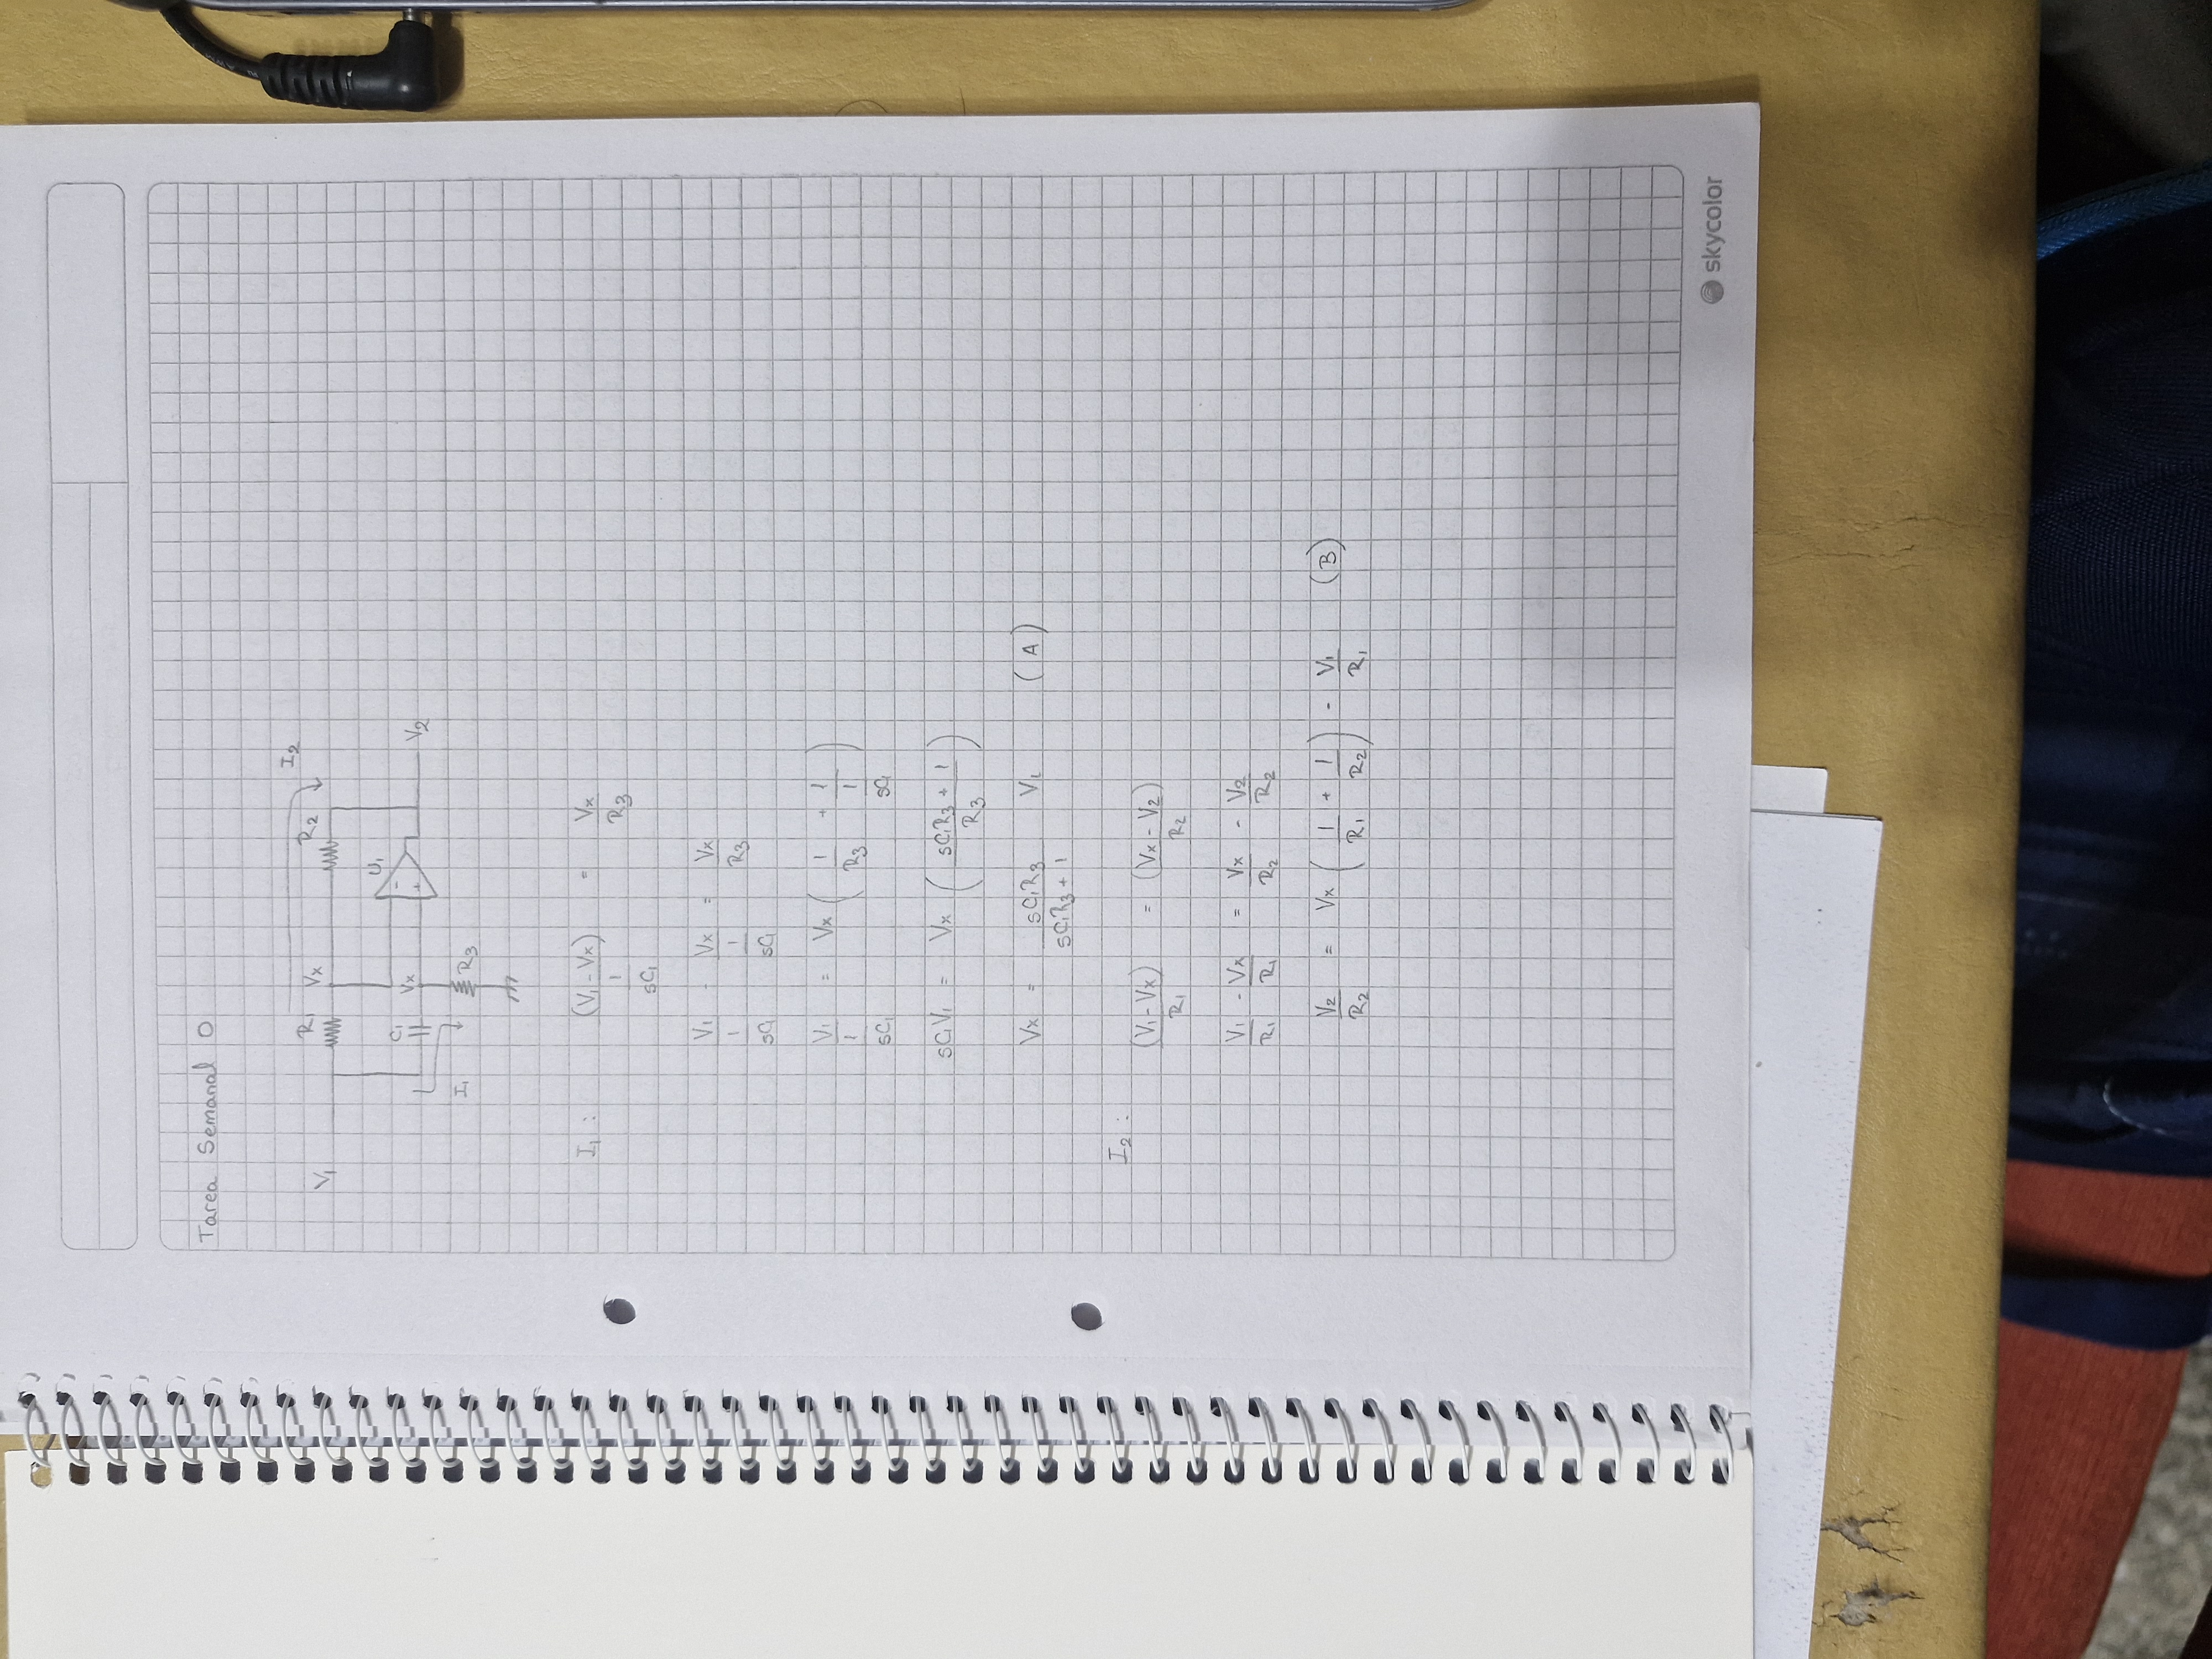 Tarea Semanal 0
I2
R1 Vx R2
V1
U1
C1
Vx - +
V2
I1 R3
I1 : (V1 - Vx) / (1 / sC1) = Vx / R3
V1 / (1 / sC1) - Vx / (1 / sC1) = Vx / R3
V1 / (1 / sC1) = Vx ( 1 / R3 + 1 / (1 / sC1) )
sC1V1 = Vx ( (sC1R3 + 1) / R3 )
Vx = sC1R3 / (sC1R3 + 1) V1 (A)
I2 :
(V1 - Vx) / R1 = (Vx - V2) / R2
V1 / R1 - Vx / R1 = Vx / R2 - V2 / R2
V2 / R2 = Vx ( 1 / R1 + 1 / R2 ) - V1 / R1 (B)
skycolor